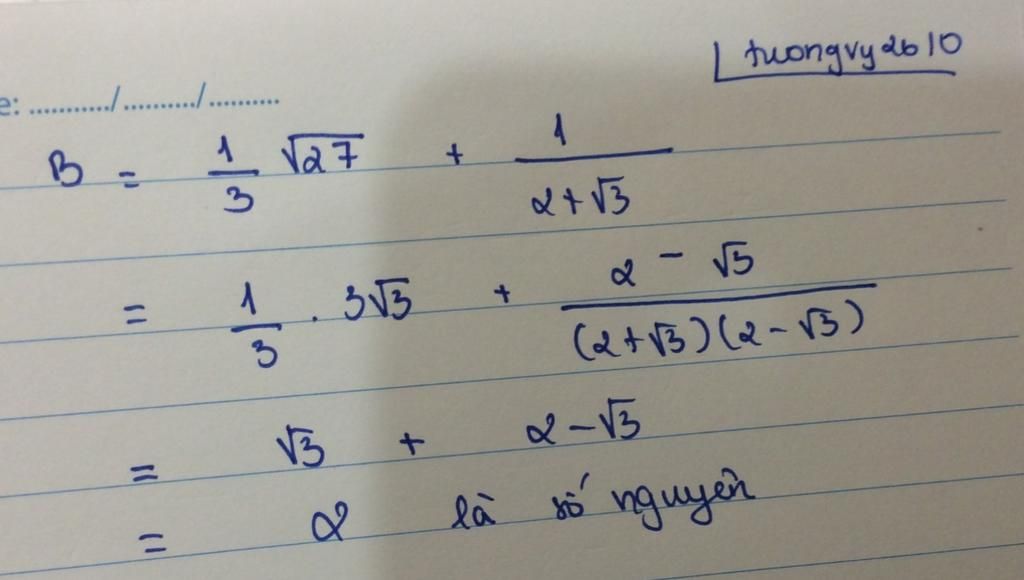 tuongvy2610
e: .........../........../..........
B = 1/3 √27 + 1/(2+√3)
= 1/3 . 3√3 + (2 - √3)/((2+√3)(2-√3))
= √3 + 2-√3
= 2 là số nguyên